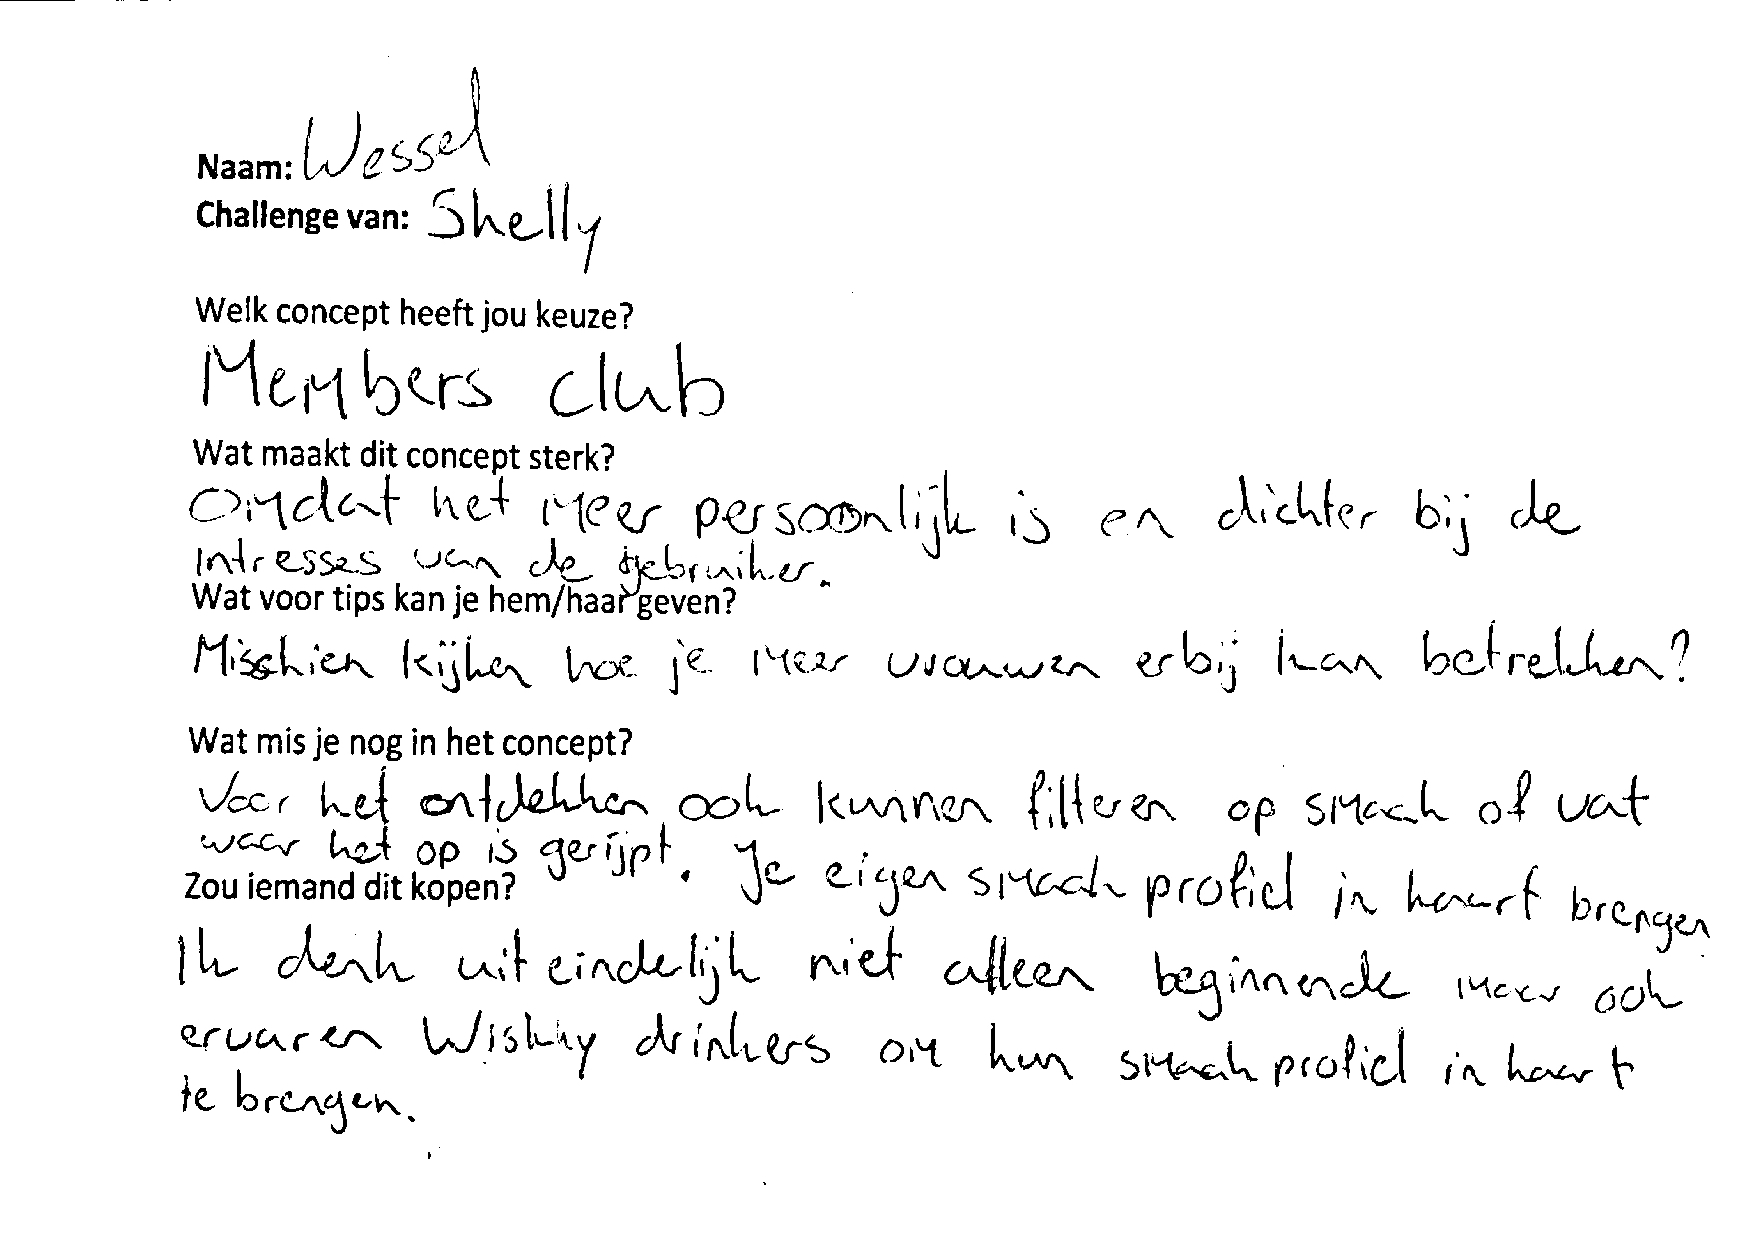 Naam: Wessel
Challenge van: Shelly
Welk concept heeft jou keuze?
Members club
Wat maakt dit concept sterk?
Omdat het meer persoonlijk is en dichter bij de
intresses van de gebruiker.
Wat voor tips kan je hem/haar geven?
Misschien kijken hoe je meer vrouwen erbij kan betrekken?
Wat mis je nog in het concept?
Voor het ontdekken ook kunnen filteren op smaak of vat
waar het op is gerijpt. Je eigen smaak profiel in kaart brengen
Zou iemand dit kopen?
Ik denk uiteindelijk niet alleen beginnende maar ook
ervaren Wisky drinkers om hun smaak profiel in kaart
te brengen.